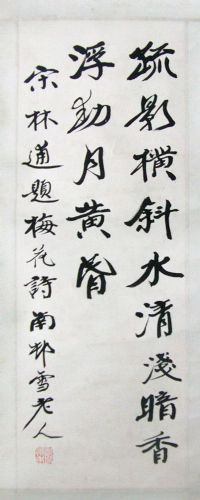 疏影橫斜水清淺暗香
浮動月黃昏
宋林逋題梅花詩南邨雪老人